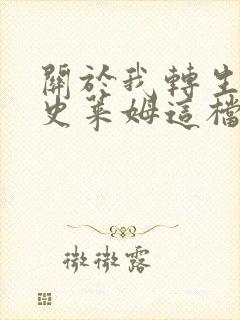 關於我轉生
史萊姆這檔
微微露